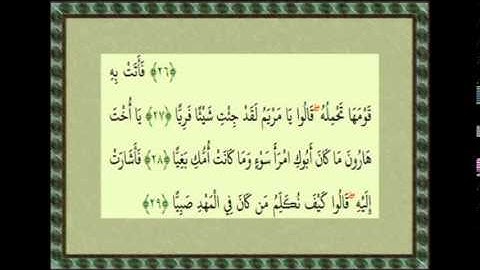 ﴿٢٦﴾ فَأَتَتْ بِهِ
قَوْمَهَا تَحْمِلُهُ ۖ قَالُوا يَا مَرْيَمُ لَقَدْ جِئْتِ شَيْئًا فَرِيًّا ﴿٢٧﴾ يَا أُخْتَ
هَارُونَ مَا كَانَ أَبُوكِ امْرَأَ سَوْءٍ وَمَا كَانَتْ أُمُّكِ بَغِيًّا ﴿٢٨﴾ فَأَشَارَتْ
إِلَيْهِ ۖ قَالُوا كَيْفَ نُكَلِّمُ مَن كَانَ فِي الْمَهْدِ صَبِيًّا ﴿٢٩﴾